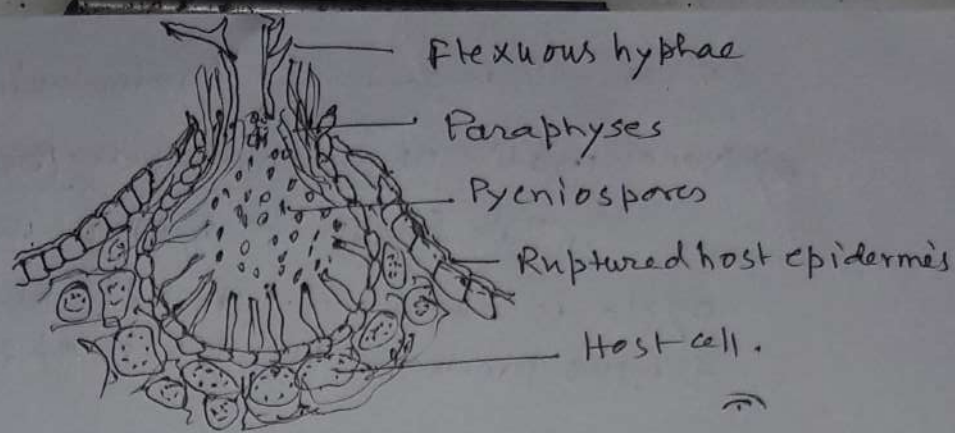 Flexuous hyphae
Paraphyses
Pycniospores
Ruptured host epidermis
Host cell.